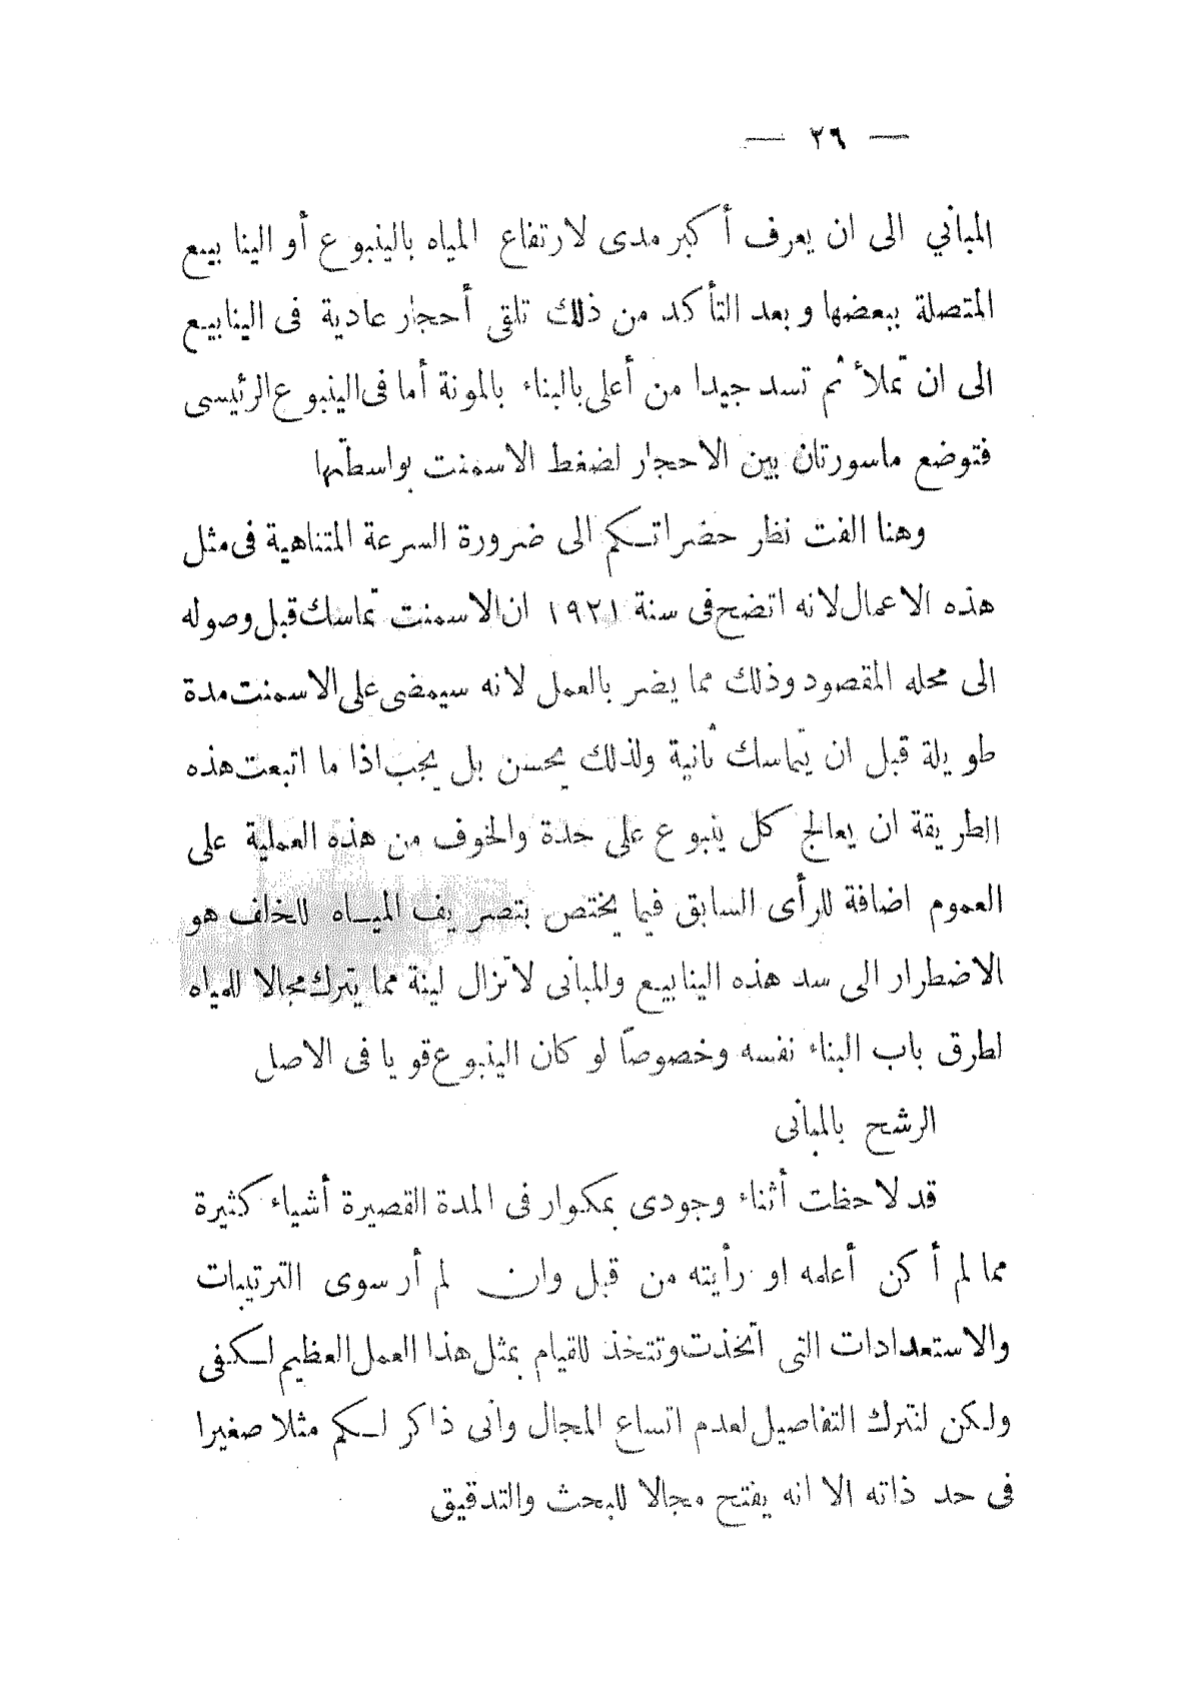 — ٢٦ —
المباني الى ان يعرف أكبر مدى لارتفاع المياه بالينبوع أو الينابيع
المتصلة ببعضها وبعد التأكد من ذلك تلقى أحجار عادية فى الينابيع
الى ان تملأ ثم تسد جيدا من أعلى بالبناء بالمونة أما فى الينبوع الرئيسى
فتوضع ماسورتان بين الاحجار لضغط الاسمنت بواسطتها
وهنا الفت نظر حضراتكم الى ضرورة السرعة المتناهية فى مثل
هذه الاعمال لانه اتضح فى سنة ١٩٢١ ان الاسمنت تماسك قبل وصوله
الى محله المقصود وذلك مما يضر بالعمل لانه سيمضى على الاسمنت مدة
طويلة قبل ان يتماسك ثانية ولذلك يحسن بل يجب اذا ما اتبعت هذه
الطريقة ان يعالج كل ينبوع على حدة والخوف من هذه العملية على
العموم اضافة للرأى السابق فيما يختص بتصريف المياه للخلف هو
الاضطرار الى سد هذه الينابيع والمبانى لاتزال لينة مما يترك مجالا للمياه
لطرق باب البناء نفسه وخصوصاً لو كان الينبوع قويا فى الاصل
الرشح بالمبانى
قد لاحظت أثناء وجودى بمكوار فى المدة القصيرة أشياء كثيرة
مما لم أكن أعلمه او رأيته من قبل وان لم أر سوى الترتيبات
والاستعدادات التى اتخذت وتتخذ للقيام بمثل هذا العمل العظيم لكفى
ولكن لنترك التفاصيل لعدم اتساع المجال وانى ذاكر لكم مثلا صغيرا
فى حد ذاته الا انه يفتح مجالا للبحث والتدقيق